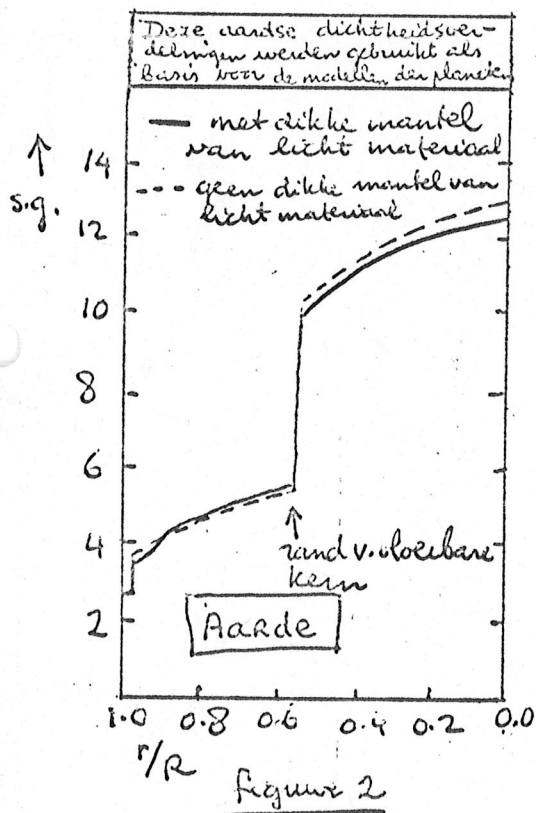 Deze aardse dichtheidsver-
delingen werden gebruikt als
basis voor de modellen der planeten
— met dikke mantel
van licht materiaal
--- geen dikke mantel van
licht materiaal
↑
s.g.
14
12
10
8
6
4
2
↑
rand v. vloeibare
kern
Aarde
1.0 0.8 0.6 0.4 0.2 0.0
r/R
figuur 2